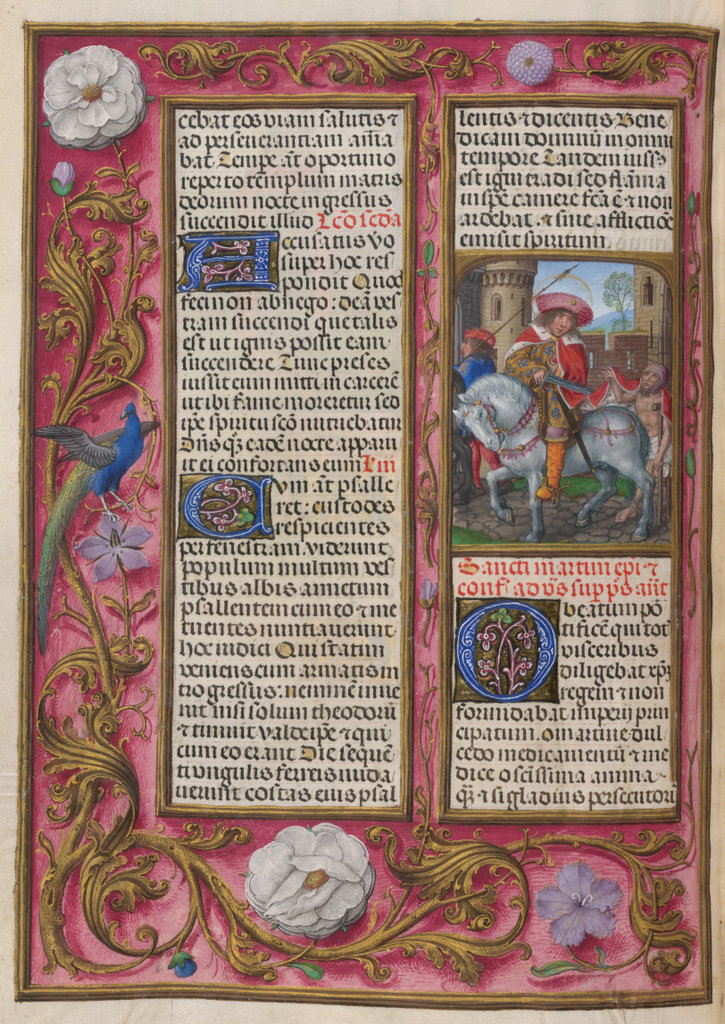 cebat eos viam salutis ⁊
ad perseverantiam aīa
bat. Tempe āt oportuno
reperto templum matris
deorum nocte ingressus
succendit illud Lc̄o sc̄da
Accusatus vo
super hoc res
pondit Quod
feci non abnego: deā ves
tram succendi que talis
est ut ignis possit eam
succendere Tunc preses
iussit eum mitti in carcerē
ut ibi fame moreretur sed
ip̄e spiritu scō nutriebatur
Dn̄s q̄ꝫ eadē nocte apparu
it ei confortans eum
Cum āt psalle
ret: custodes
respicientes
per fenestram. viderunt
populum multum ves
tibus albis amictum
psallentem cum eo ⁊ me
tuentes nuntiaverunt
hoc iudici Qui statim
veniens cum armatis in
trogressus: neminem inve
nit nisi solum theodorū
⁊ timuit valde ip̄e ⁊ qui
cum eo erant Die sequen
ti ungulis ferreis nuda
verunt costas eius psal
lentis ⁊ dicentis Bene
dicam dominū in omni
tempore Tandem iussꝰ
est igni tradi sed flāma
in spē camere fc̄a ē ⁊ non
ardebat ⁊ sine afflictiōe
emisit spiritum
Sancti martini ep̄i ⁊
conf̄ ad vs̄ supp̄s ān̄t
O beatum pō
tificē qui tot
visceribus
diligebat xp̄m
regem ⁊ non
formidabat imperii prin
cipatum. o martine dul
cedo medicamentū ⁊ me
dice o scissima anima
q̄ꝫ ⁊ si gladius persecutoris